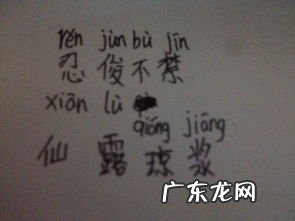 rěn jùn bù jīn
忍俊不禁
xiān lù
qióng jiāng
仙露琼浆
广东龙网